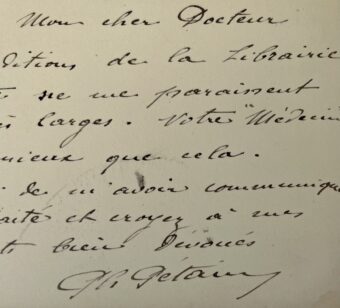 Mon cher Docteur
ditions de la Librairie
ne me paraissent
s larges. Votre "Médecin
mieux que cela.
de m'avoir communiqu
aité et croyez à mes
ts bien dévoués
Ph. Pétain